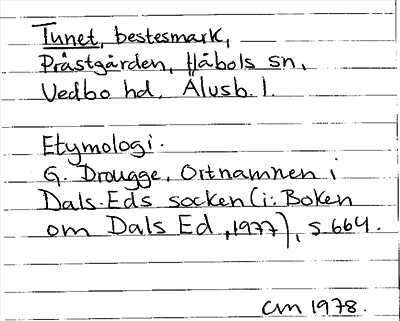 Tunet, betesmark,
Prästgården, Håbols sn,
Vedbo hd, Älvsb. l.
Etymologi.
G. Drougge, Ortnamnen i
Dals-Eds socken (i: Boken
om Dals Ed, 1977), s 664.
cm 1978.